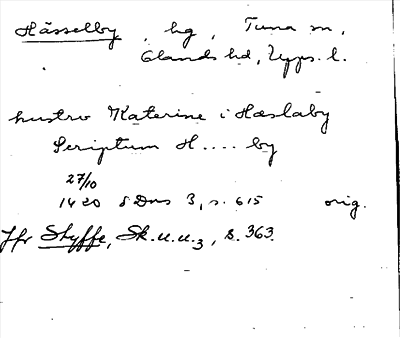 Hässelby, hg, Tuna sn,
Olands hd, Upps. l.
hustro Katerine i Hæslaby
Scriptum H....by
27/10
1420 SDns 3, s. 615 orig.
Jfr Styffe, Sk.u.u.3, s. 363.